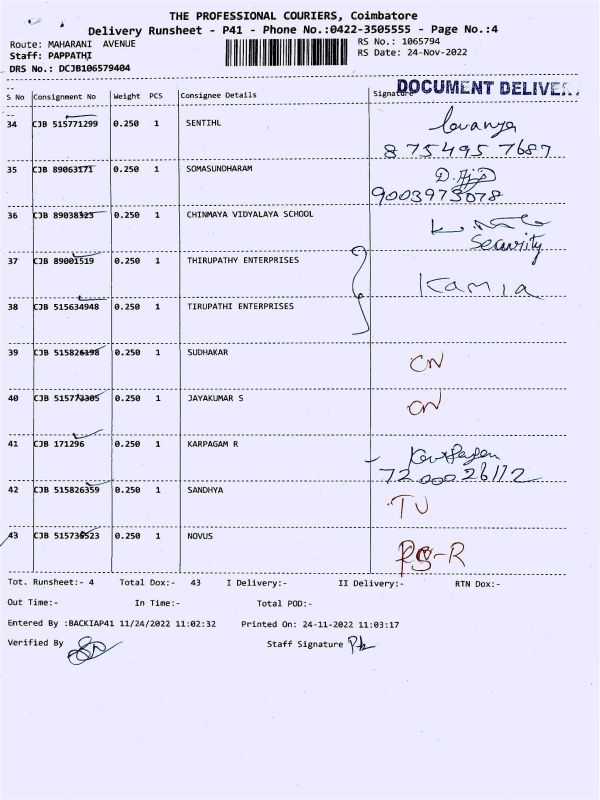 THE PROFESSIONAL COURIERS, Coimbatore
Delivery Runsheet - P41 - Phone No.:0422-3505555 - Page No.:4
Route: MAHARANI AVENUE
RS No.: 1065794
Staff: PAPPATHI
RS Date: 24-Nov-2022
DRS No.: DCJB106579404
DOCUMENT DELIVE
S No Consignment No Weight PCS Consignee Details Signature
34 CJB 515771299 0.250 1 SENTIHL lavanya
8754957687
35 CJB 89063171 0.250 1 SOMASUNDHARAM
9003975078
36 CJB 89038323 0.250 1 CHINMAYA VIDYALAYA SCHOOL
Security
37 CJB 89001519 0.250 1 THIRUPATHY ENTERPRISES
Kamla
38 CJB 515634948 0.250 1 TIRUPATHI ENTERPRISES
39 CJB 515826198 0.250 1 SUDHAKAR CN
40 CJB 515773305 0.250 1 JAYAKUMAR S CN
41 CJB 171296 0.250 1 KARPAGAM R
7200026112
42 CJB 515826359 0.250 1 SANDHYA TV
43 CJB 515736523 0.250 1 NOVUS
Tot. Runsheet:- 4 Total Dox:- 43 I Delivery:- II Delivery:- RTN Dox:-
Out Time:- In Time:- Total POD:-
Entered By :BACKIAP41 11/24/2022 11:02:32 Printed On: 24-11-2022 11:03:17
Verified By Staff Signature